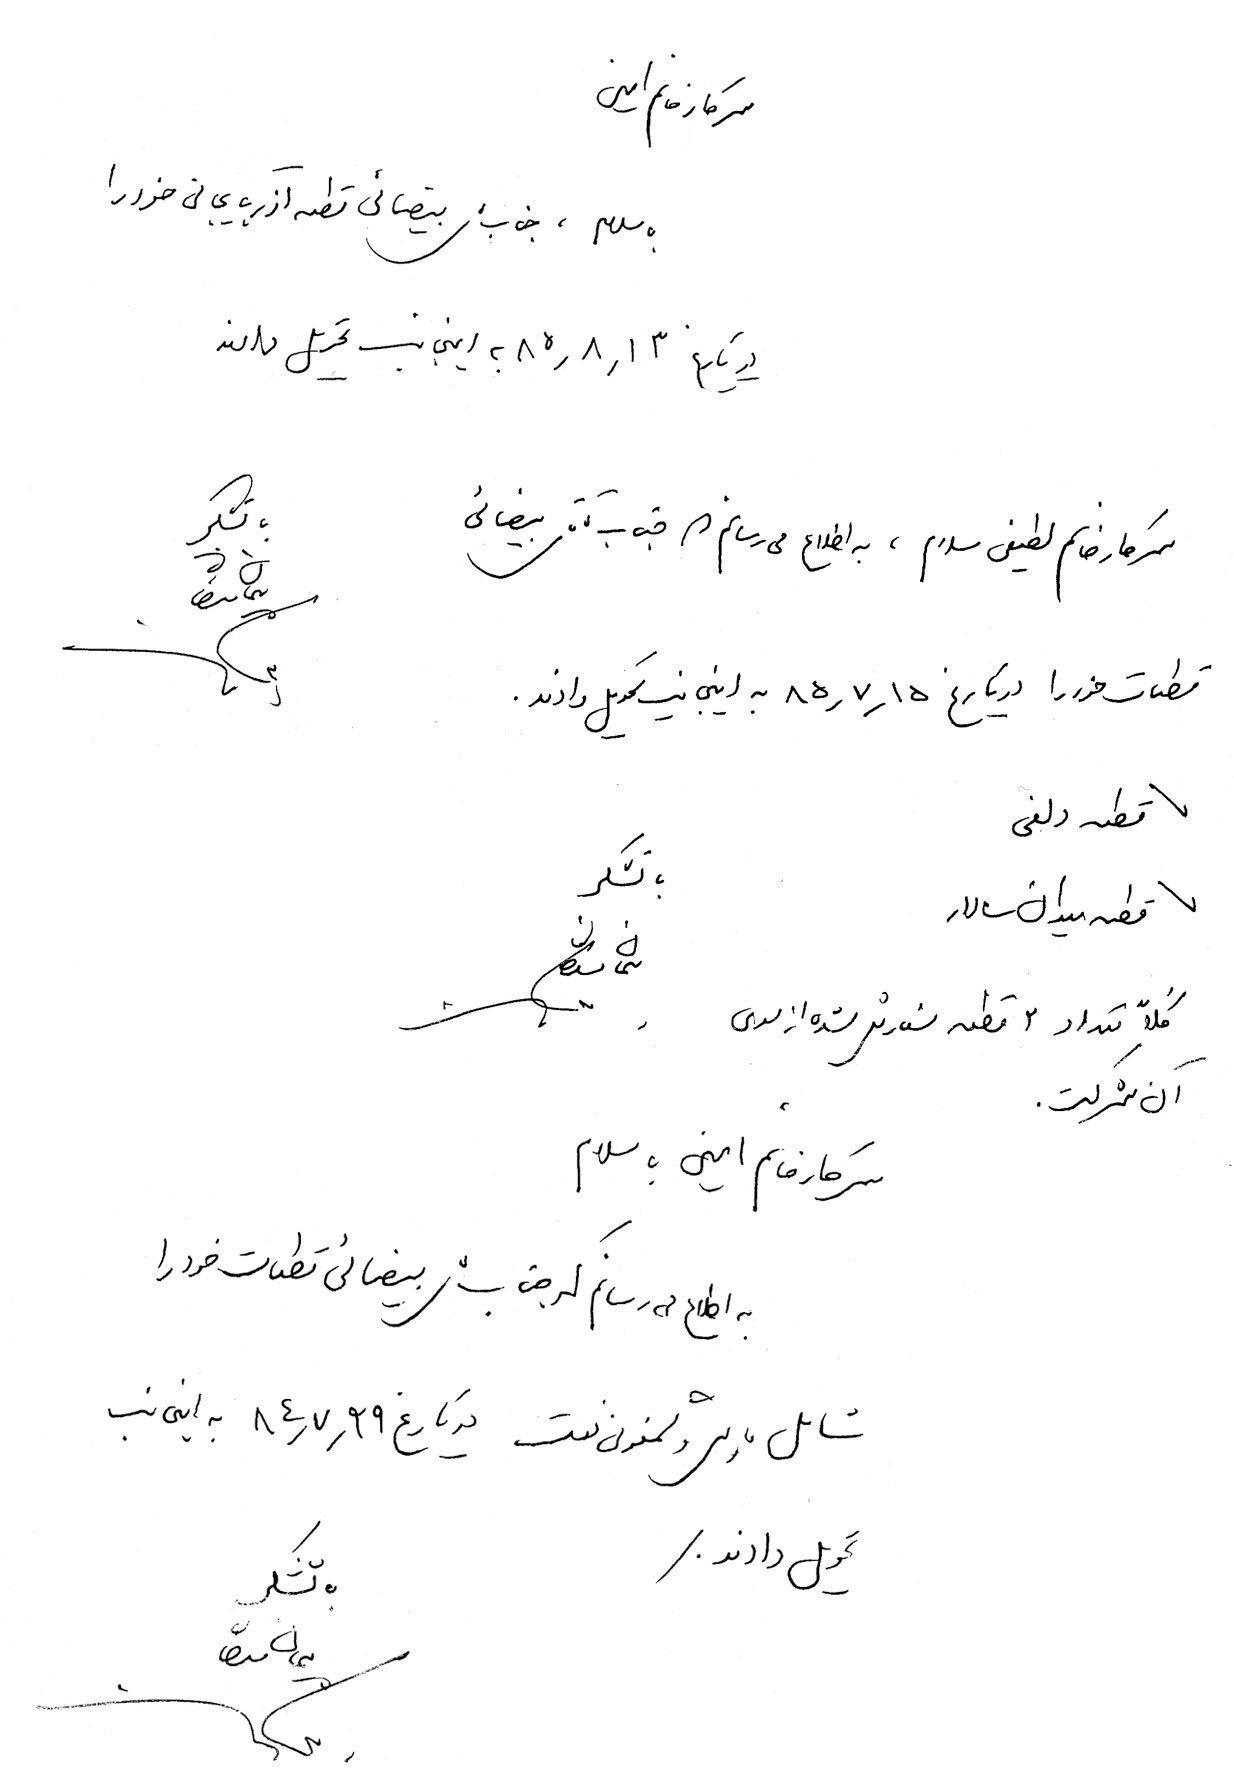 سرکار خانم امینی
با سلام ، جناب آقای بیضائی قطعه آذربایجانی خود را
در تاریخ ۸۵٫۸٫۱۳ به اینجانب تحویل دادند
با تشکر
سرکار خانم لطیفی سلام ، به اطلاع می رسانم که جناب آقای بیضائی
قطعات خود را در تاریخ ۸۵٫۷٫۱۵ به اینجانب تحویل دادند .
قطعه دلفی
قطعه میدان سالار
با تشکر
کلاً تعداد ۲ قطعه سفارش شده از سوی
آن شرکت .
سرکار خانم امینی با سلام
به اطلاع می رسانم که جناب آقای بیضائی قطعات خود را
شامل و سمفونی نفت در تاریخ ۸۴٫۷٫۲۹ به اینجانب
تحویل دادند ./
با تشکر